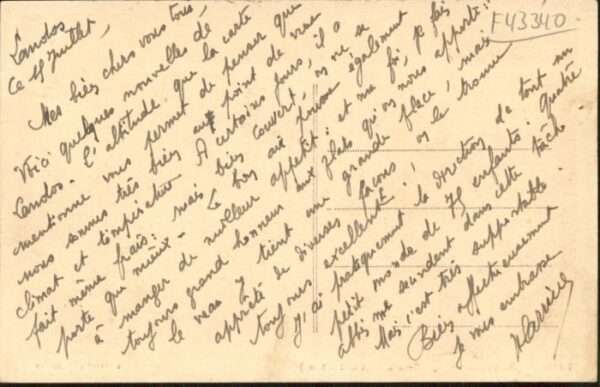 F43340
Landos
Ce 4 Juillet,
Mes biens chers vous tous,
Voici quelques nouvelles de
Landos. L'altitude que la carte
mentionne vous permet de penser que
nous sommes très bien au point de vue
climat et température. A certains jours, il a
fait même frais: mais bien couvert, on ne se
porte que mieux. Le bon air pousse également
à manger de meilleur appétit: et ma foi, je fais
toujours grand honneur aux plats qu'on nous apporte:
le veau y tient une grande place, mais
apprêté de diverses façons, on le trouve
toujours excellent!
J'ai pratiquement la direction de tout un
petit monde de 75 enfants. Quatre
abbés me secondent dans cette tâche
Mais c'est très supportable.
Bien affectueusement
Je vous embrasse